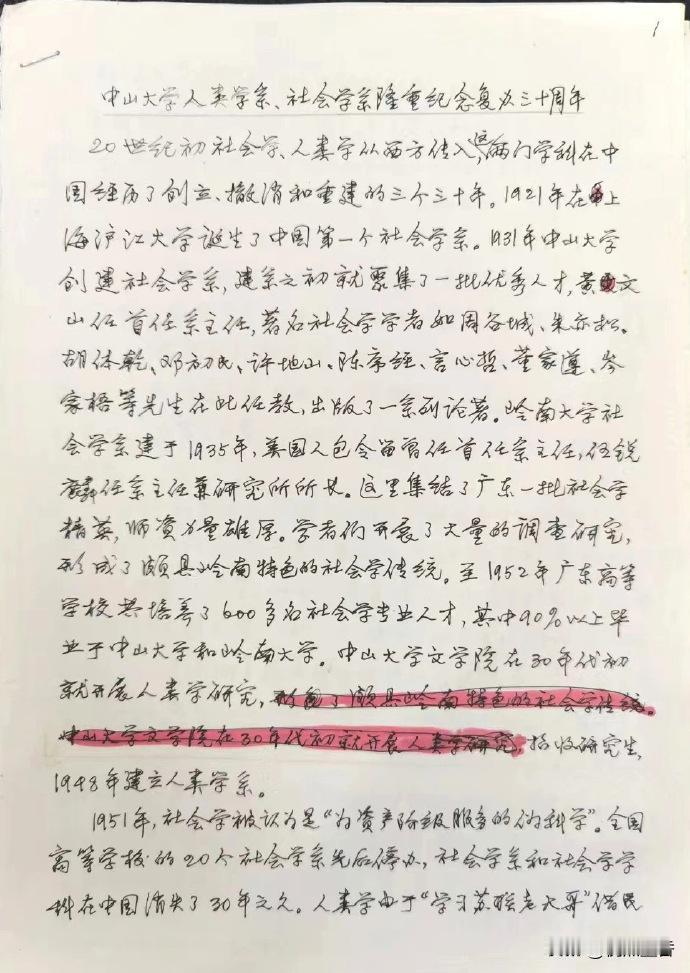 1
中山大学人类学系、社会学系隆重纪念复办三十周年
20世纪初社会学、人类学从西方传入,这两门学科在中
国经历了创立、撤消和重建的三个三十年。1921年在上
海沪江大学诞生了中国第一个社会学系。1931年中山大学
创建社会学系,建系之初就聚集了一批优秀人才,黄文
山任首任系主任,著名社会学学者如周谷城、朱亦松、
胡体乾、邓初民、许地山、陈序经、言心哲、董家遵、岑
家梧等先生在此任教,出版了一系列论著。岭南大学社
会学系建于1935年,美国人包令留曾任首任系主任,伍锐
麟任系主任兼研究所所长。这里集结了广东一批社会学
精英,师资力量雄厚。学者们开展了大量的调查研究,
形成了颇具岭南特色的社会学传统。至1952年广东高等
学校共培养了600多名社会学专业人才,其中90%以上毕
业于中山大学和岭南大学。中山大学文学院在30年代初
就开展人类学研究,形成了颇具岭南特色的社会学传统。
中山大学文学院在30年代初就开展人类学研究,招收研究生,
1948年建立人类学系。
1951年,社会学被认为是“为资产阶级服务的伪科学”。全国
高等学校的20个社会学系先后停办,社会学系和社会学学
科在中国消失了30年之久。人类学由于“学习苏联老大哥”借民